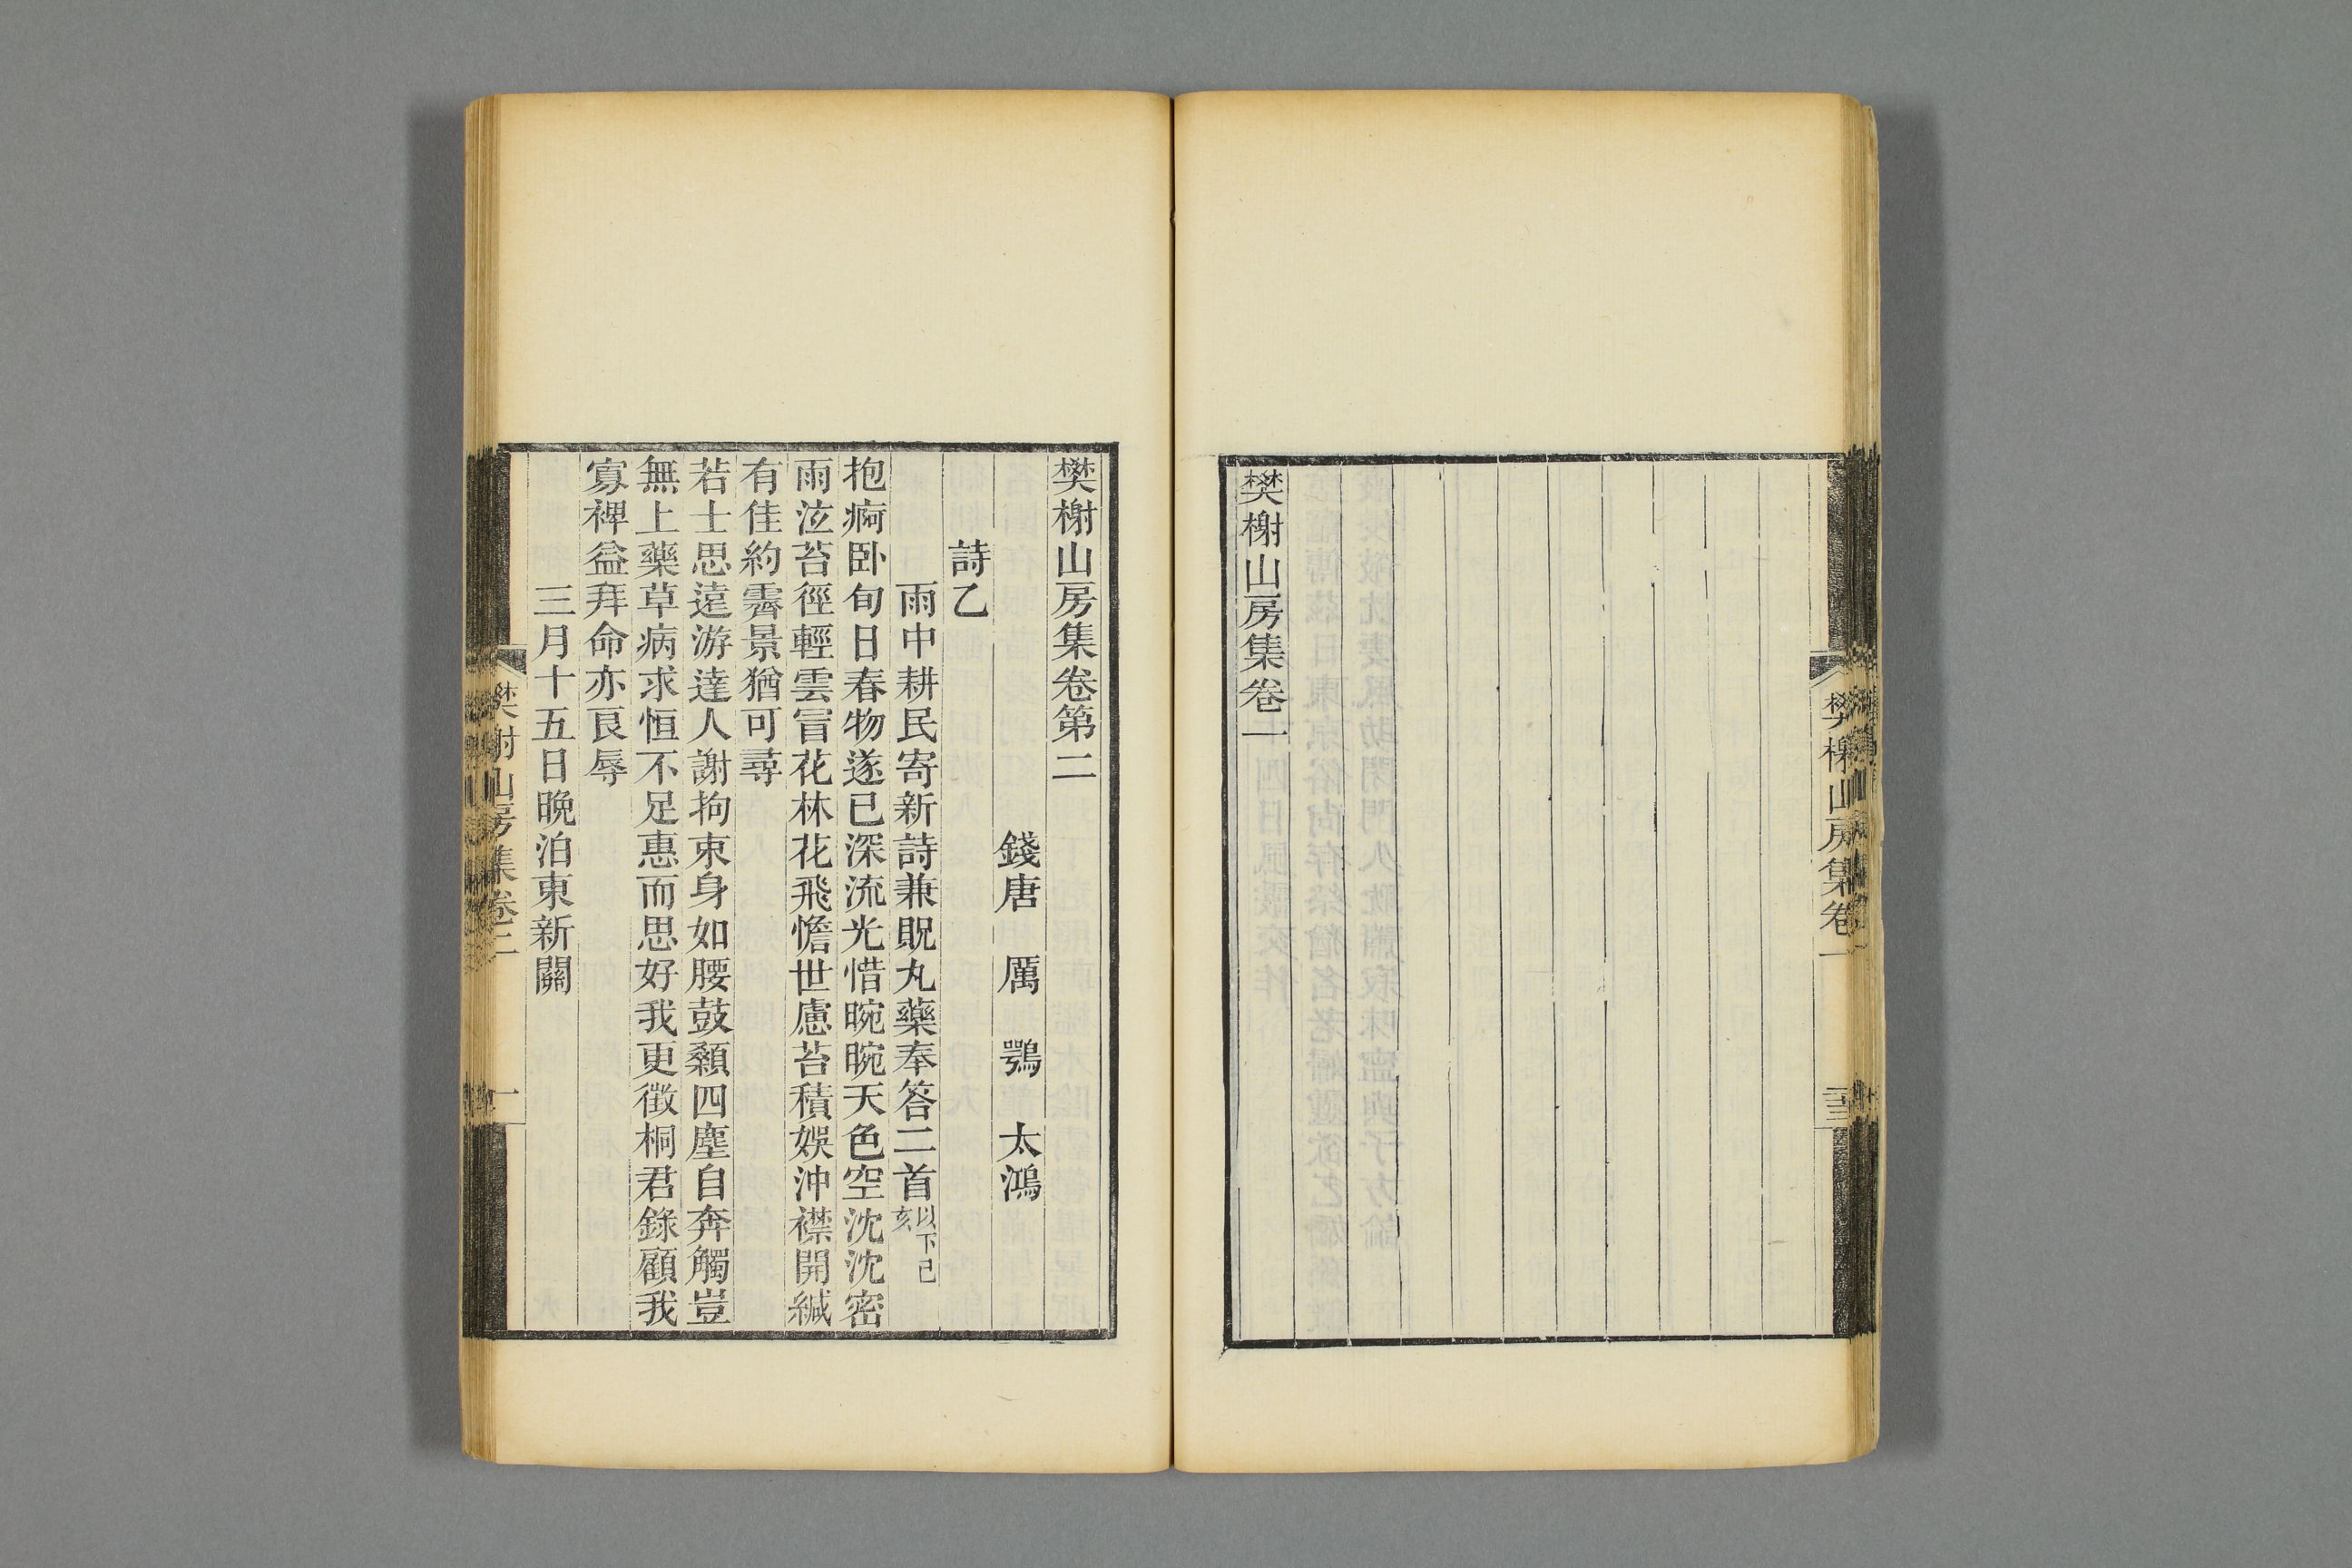 樊榭山房集卷一
三十三
樊榭山房集卷一
樊榭山房集卷第二
錢唐 厲 鶚 太鴻
詩乙
雨中耕民寄新詩兼貺丸藥奉答二首以下己亥
抱痾卧旬日春物遂已深流光惜晼晼天色空沈沈密
雨泣苔徑輕雲冒花林花飛憺世慮苔積娛沖襟開緘
有佳約霽景猶可尋
若士思遠游達人謝拘束身如腰鼓顙四塵自奔觸豈
無上藥草病求恒不足惠而思好我更徵桐君錄顧我
寡裨益拜命亦良辱
三月十五日晚泊東新關
樊榭山房集卷二
一